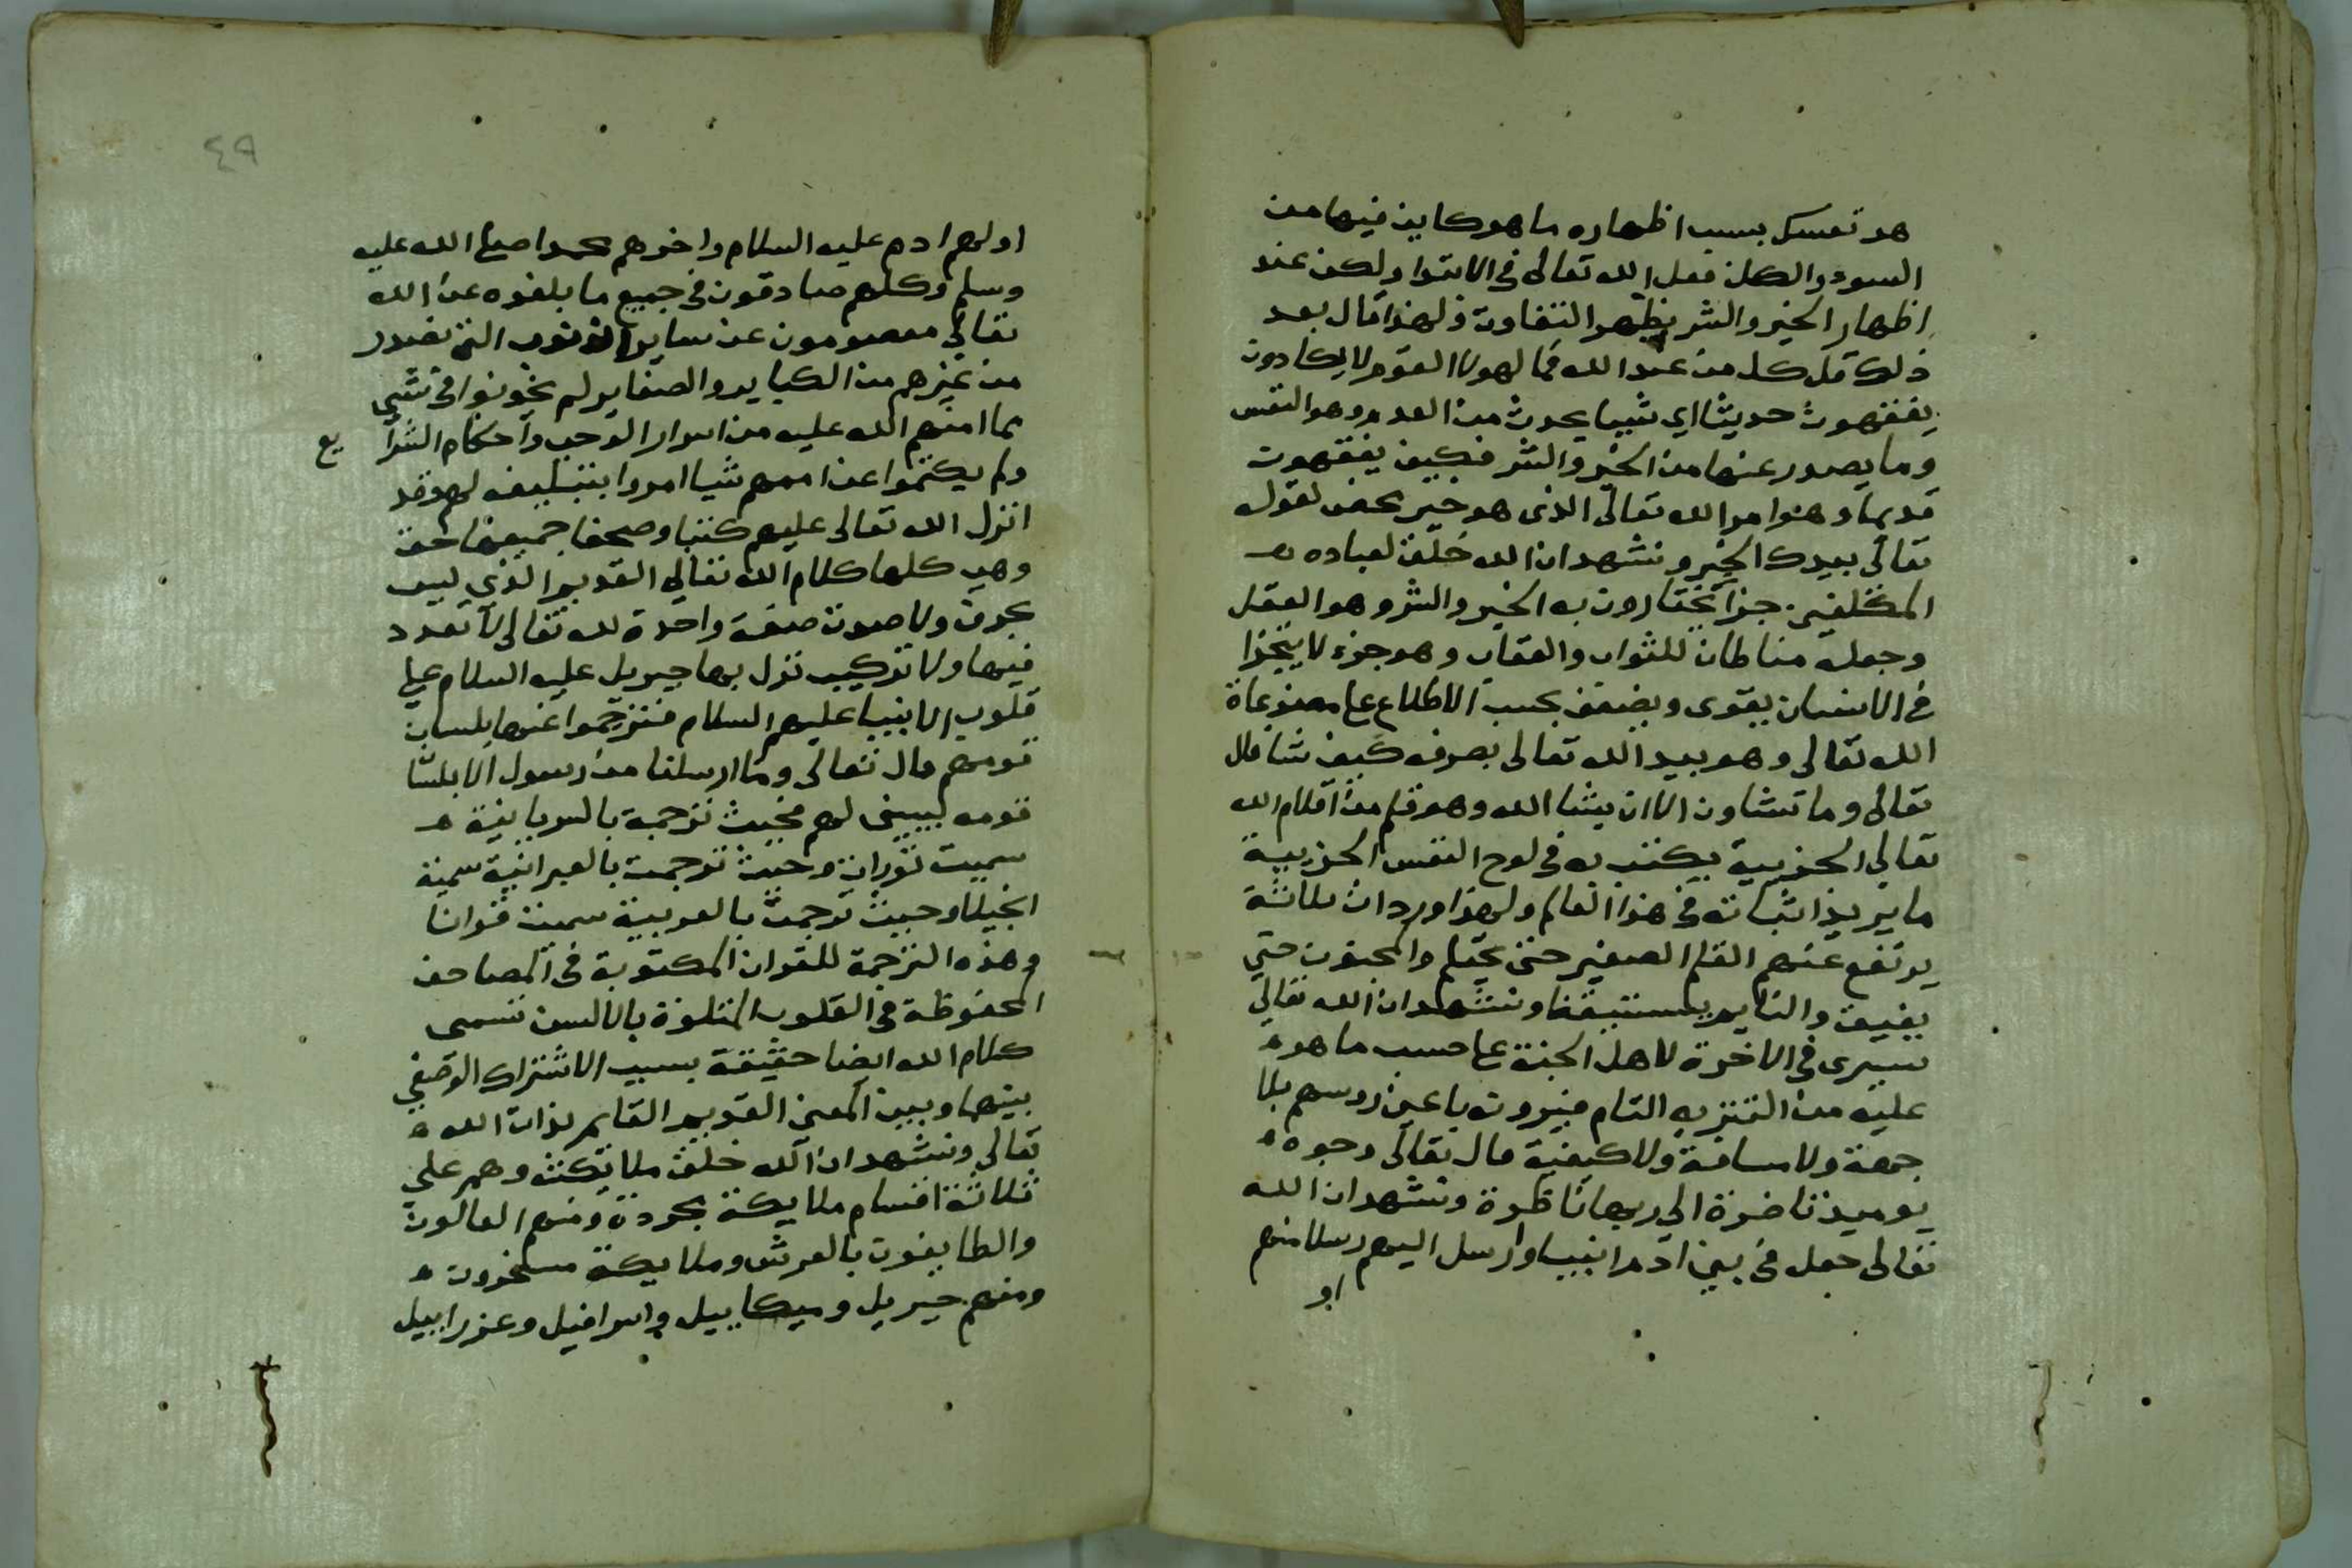 هو تعسك بسبب اظهاره ما هو كاين فيها من
السوء والكل فعل الله تعالى فى الابتدا ولكن عند
اظهار الخير والشر يظهر التفاوت ولهذا قال بعد
ذلك قل كل من عند الله فما لهولا القوم لا يكادون
يفقهون حديثا اي شييا يحدث من العدم وهو النفس
وما يصدر عنها من الخير والشر فكيف يفقهون
قديما وهو امر الله تعالى الذى هو خير محض لقوله
تعالى بيدك الخير ونشهد ان الله خلق لعباده
المكلفين جزا يختارون به الخير والشر وهو العقل
وجعله مناطا للثواب والعقاب وهو جزء لا يتجزا
فى الانسان يقوى ويضعف بحسب الاطلاع على مصنوعاة
الله تعالى وهو بيد الله تعالى يصرفه كيف شا قال
تعالى وما تشاون الا ان يشا الله وهو قلم من اقلام الله
تعالى الجزيية يكتب به فى لوح النفس الجزيية
ما يريد اثباته فى هذا العالم ولهذا ورد ان ثلاثة
يرتفع عنهم القلم الصغير حتى يحتلم والمجنون حتى
يفيق والنايم يستيقظ ونشهد ان الله تعالى
سيرى فى الاخرة لاهل الجنة على حسب ما هو
عليه من التنزيه التام فيرونه باعين روسهم بلا
جهة ولا مسافة ولا كيفية قال تعالى وجوه
يوميذ ناضرة الى ربها ناظرة ونشهد ان الله
تعالى جعل فى بني ادم انبيا وارسل اليهم رسلا منهم
او
٤٩
اولهم ادم عليه السلام واخرهم محمدا صلى الله عليه
وسلم وكلهم صادقون فى جميع ما بلغوه عن الله
تعالى معصومون عن ساير الذنوب التى تصدر
من غيرهم من الكباير والصغاير لم يخونوا فى شي
مما امنهم الله عليه من اسرار الوحى واحكام الشرا
يع
ولم يكتموا عن اممهم شيا امروا بتبليغه لهم وقد
انزل الله تعالى عليهم كتبا وصحفا جميعها حق
وهى كلها كلام الله تعالى القديم الذي ليس
بحرف ولا صوت صفة واحدة لله تعالى لا تعدد
فيها ولا تركيب نزل بها جبريل عليه السلام على
قلوب الانبيا عليهم السلام فترجموا عنها بلسان
قومهم قال تعالى وما ارسلنا من رسول الا بلسا
قومه ليبين لهم فحيث ترجمة بالسريانية
سميت توراة وحيث ترجمت بالعبرانية سمية
انجيلا وحيث ترجمت بالعربية سمت قرانا
وهذه الترجمة للقران المكتوبة فى المصاحف
المحفوظة فى القلوب المتلوة بالالسن تسمى
كلام الله ايضا حقيقة بسبب الاشتراك الوضعي
بينها وبين المعنى القديم القايم بذات الله
تعالى ونشهد ان الله خلق ملايكته وهم على
ثلاثة اقسام ملايكة مجردة ومنهم العالون
والطايفون بالعرش وملايكة مسخرون
ومنهم جبريل وميكاييل واسرافيل وعزراييل